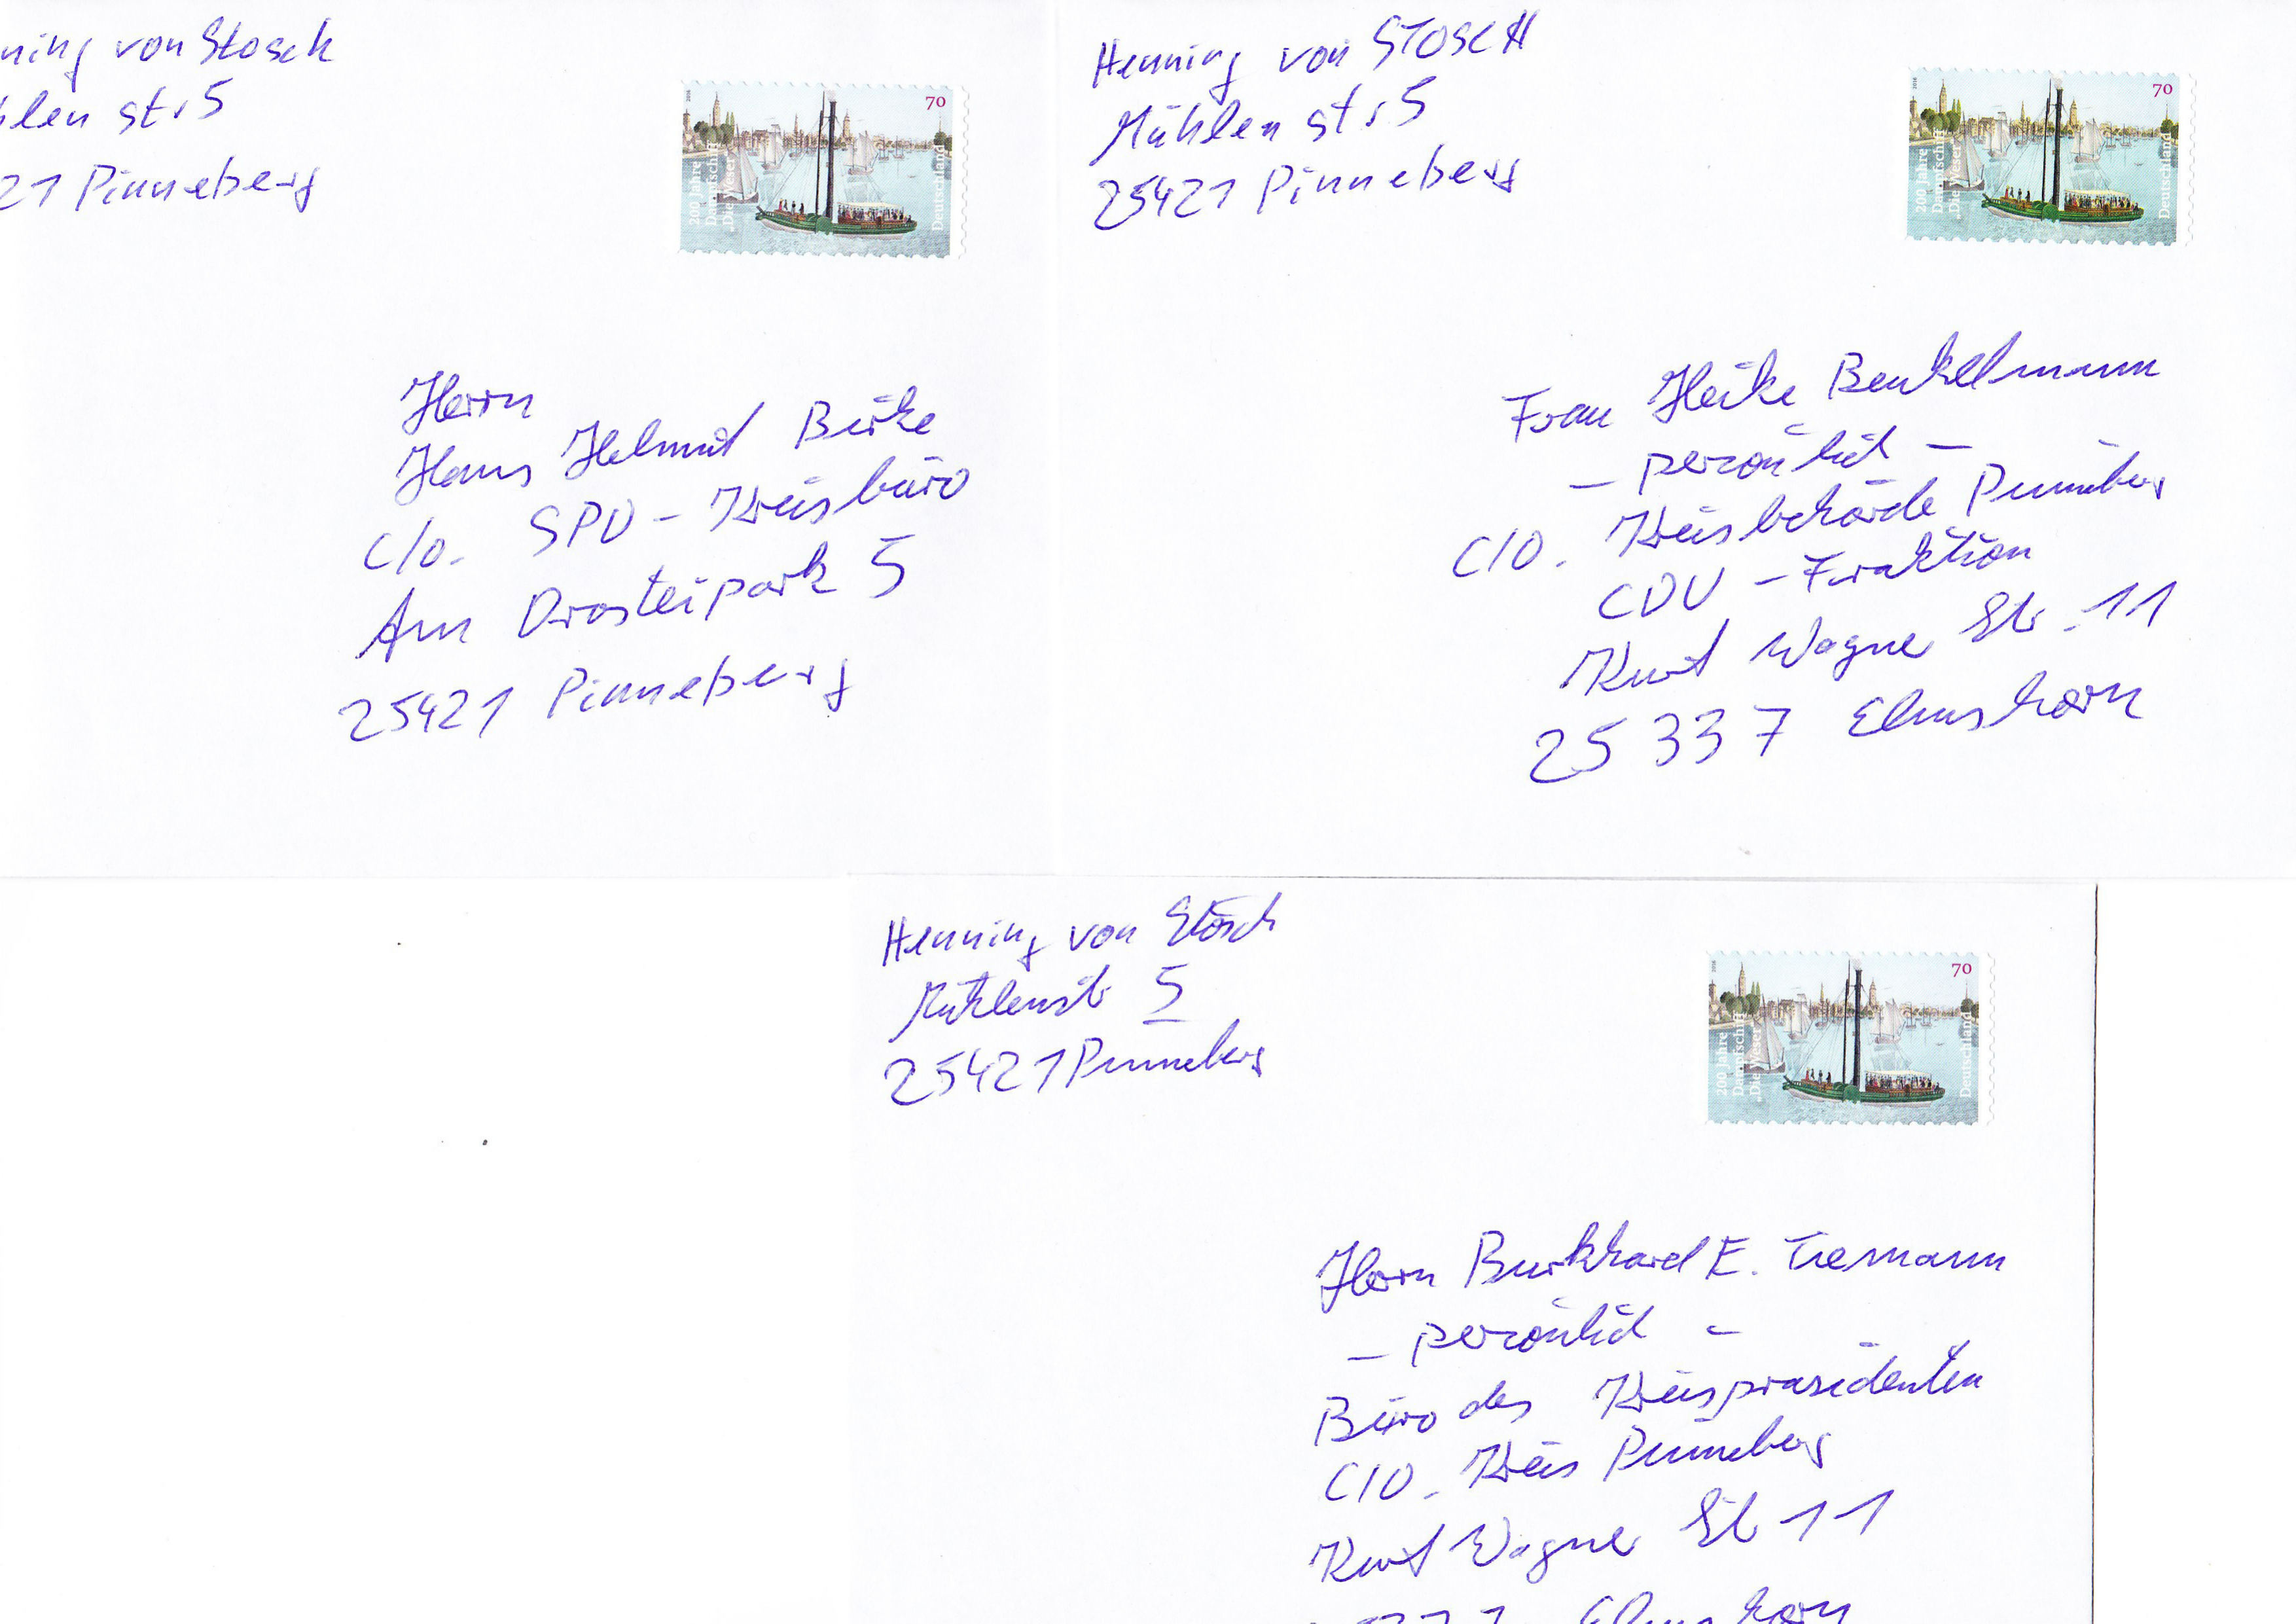 ning von Stosch
hlen str 5
21 Pinneberg
2016
70
200 Jahre
Dampfschiff
„Die Weser“
Deutschland
Herrn
Hans Helmut Birke
c/o. SPD - Kreisbüro
Am Drosteipark 5
25421 Pinneberg
Henning von STOSCH
Mühlen str 5
25421 Pinneberg
2016
70
200 Jahre
Dampfschiff
„Die Weser“
Deutschland
Frau Heike Beukelmann
- persönlich -
C/O. Kreisbehörde Pinneberg
CDU - Fraktion
Kurt Wagner Str. 11
25337 Elmshorn
Henning von Stosch
Mühlenstr 5
25421 Pinneberg
2016
70
200 Jahre
Dampfschiff
„Die Weser“
Deutschland
Herrn Burkhard E. Tiemann
- persönlich -
Büro des Kreispräsidenten
C/O. Kreis Pinneberg
Kurt Wagner Str 11
Elmshorn